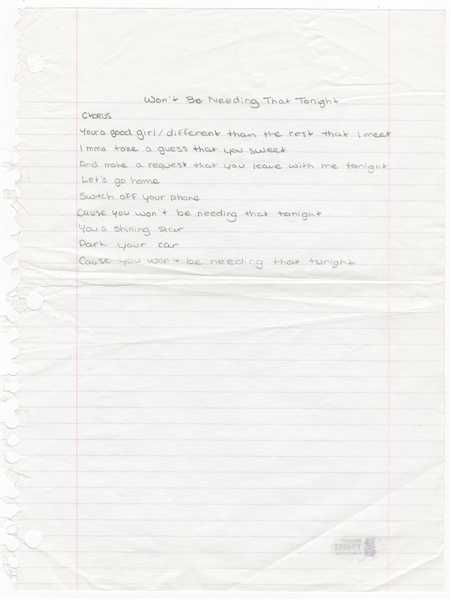 Won't Be Needing That Tonight
CHORUS
Your a good girl/different than the rest that I meet
Imma take a guess that you sweet
And make a request that you leave with me tonight
Let's go home
Switch off your phone
Cause you won't be needing that tonight
You a shining star
Park your car
Cause you won't be needing that tonight